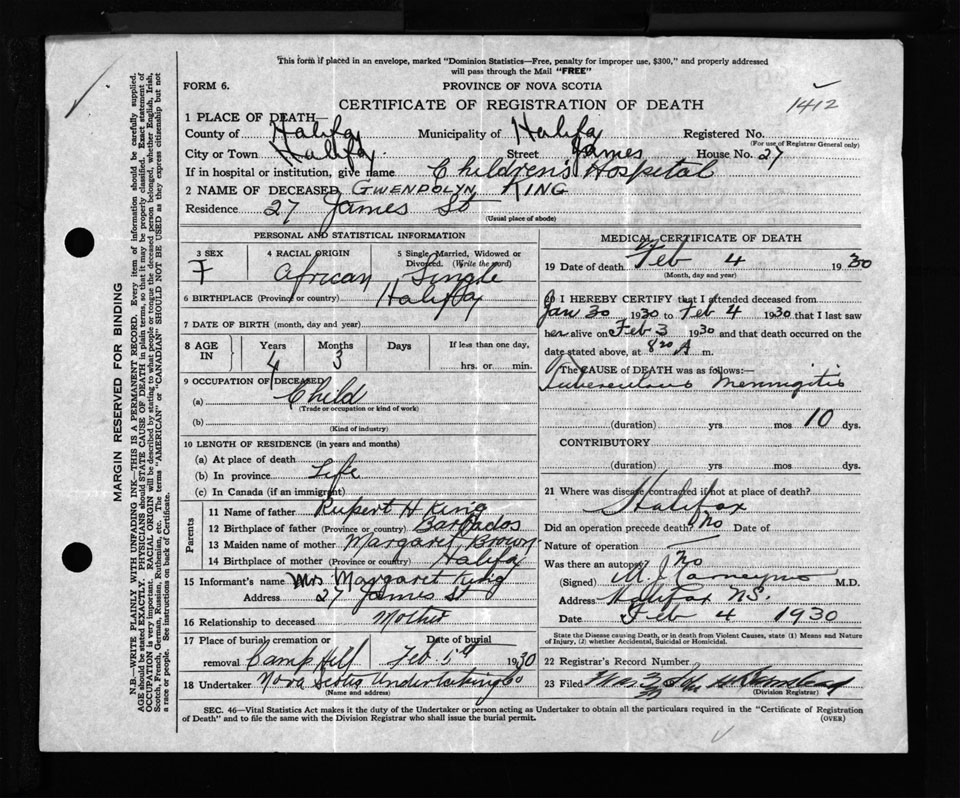 This form if placed in an envelope, marked "Dominion Statistics—Free, penalty for improper use, $300," and properly addressed
will pass through the Mail "FREE"
FORM 6.
PROVINCE OF NOVA SCOTIA
CERTIFICATE OF REGISTRATION OF DEATH
1412
1 PLACE OF DEATH—
County of Halifax Municipality of Halifax Registered No.
(For use of Registrar General only)
City or Town Halifax Street James House No. 27
If in hospital or institution, give name Children's Hospital
2 NAME OF DECEASED GWENDOLYN KING
Residence 27 James St
(Usual place of abode)
PERSONAL AND STATISTICAL INFORMATION
3 SEX F
4 RACIAL ORIGIN African
5 Single, Married, Widowed or Divorced. (Write the word) Single
6 BIRTHPLACE (Province or country) Halifax
7 DATE OF BIRTH (month, day and year)
8 AGE IN Years Months Days If less than one day,
4 3 hrs. or min.
9 OCCUPATION OF DECEASED
(a) Child
(Trade or occupation or kind of work)
(b)
(Kind of industry)
10 LENGTH OF RESIDENCE (in years and months)
(a) At place of death
(b) In province Life
(c) In Canada (if an immigrant)
Parents
11 Name of father Rupert H King
12 Birthplace of father (Province or country) Barbados
13 Maiden name of mother Margaret Brown
14 Birthplace of mother (Province or country) Halifax
15 Informant's name Mrs Margaret King
Address 27 James St
16 Relationship to deceased Mother
17 Place of burial, cremation or removal Camp Hill
Date of burial Feb 5th 1930
18 Undertaker Nova Scotia Undertaking Co
(Name and address)
MEDICAL CERTIFICATE OF DEATH
19 Date of death Feb 4 1930
(Month, day and year)
20 I HEREBY CERTIFY that I attended deceased from
Jan 30 1930 to Feb 4 1930 that I last saw
her alive on Feb 3 1930 and that death occurred on the
date stated above, at 8 20 A m.
The CAUSE OF DEATH was as follows:—
Tuberculous Meningitis
(duration) yrs mos 10 dys.
CONTRIBUTORY
(duration) yrs. mos. dys.
21 Where was disease contracted if not at place of death?
Halifax
Did an operation precede death? No Date of
Nature of operation
Was there an autopsy? No
(Signed) M.D.
Address Halifax N.S.
Date Feb 4 1930
State the Disease causing Death, or in death from Violent Causes, state (1) Means and Nature
of Injury, (2) whether Accidental, Suicidal or Homicidal.
22 Registrar's Record Number
23 Filed
(Division Registrar)
SEC. 46—Vital Statistics Act makes it the duty of the Undertaker or person acting as Undertaker to obtain all the particulars required in the "Certificate of Registration
of Death" and to file the same with the Division Registrar who shall issue the burial permit.
(OVER)
MARGIN RESERVED FOR BINDING
N.B.—WRITE PLAINLY WITH UNFADING INK—THIS IS A PERMANENT RECORD. Every item of information should be carefully supplied.
AGE should be stated EXACTLY. PHYSICIANS should STATE CAUSE OF DEATH in plain terms, so that it may be properly classified. Exact statement of
OCCUPATION is very important. RACIAL ORIGIN will be described by stating to what people or tongue the deceased person belonged, whether English, Irish,
Scotch, French, German, Russian, Ruthenian, etc. The terms "AMERICAN" or "CANADIAN" SHOULD NOT BE USED as they express citizenship but not
a race or people. See instructions on back of Certificate.